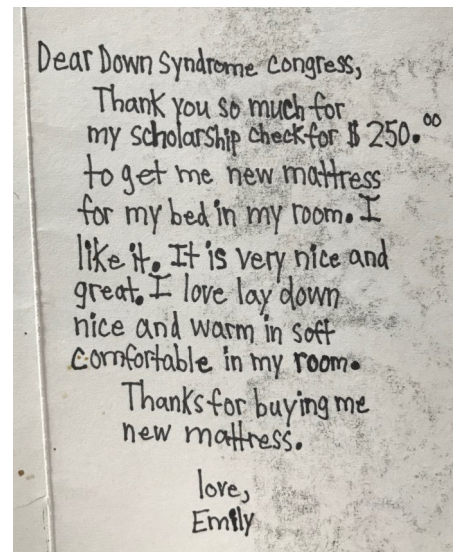 Dear Down Syndrome Congress,
Thank you so much for
my scholarship check for $ 250.00
to get me new mattress
for my bed in my room. I
like it. It is very nice and
great. I love lay down
nice and warm in soft
comfortable in my room.
Thanks for buying me
new mattress.
love,
Emily